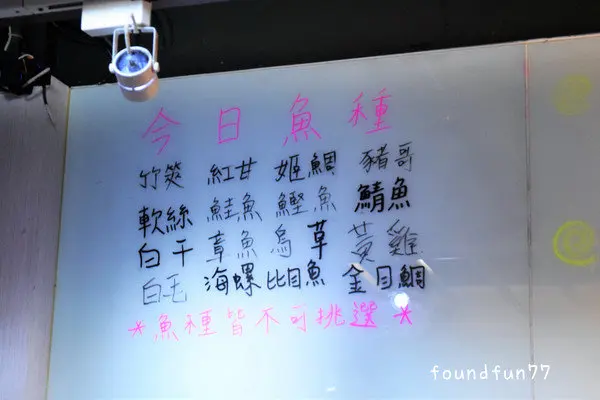 今日魚種
竹筴 紅甘 姬鯛 豬哥
軟絲 鮭魚 鰹魚 鯖魚
白干 章魚 烏草 黃雞
白毛 海螺 比目魚 金目鯛
*魚種皆不可挑選*
foundfun77